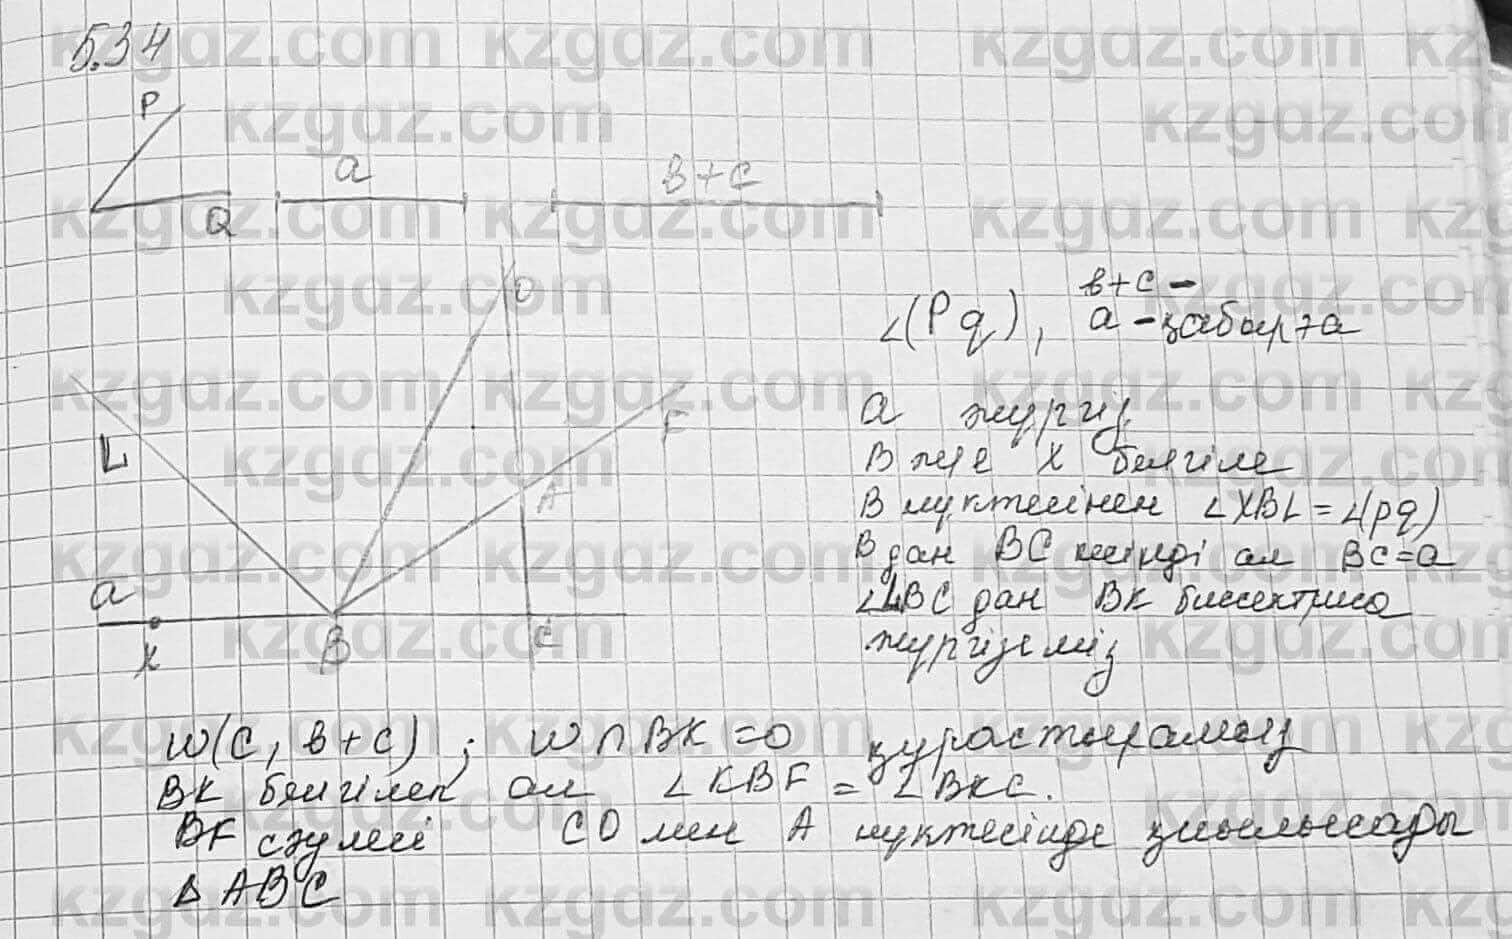 5.34
P
Q
a
в+с
O
L
F
A
a
x
B
C
∠(Pq), в+с –
a – қабырға
a жүргіз
B және X белгіле
B нүктесінен ∠XBL = ∠(pq)
B дан BC кесінді ал BC=a
∠LBC дан BK биссектриса
жүргіземіз
w(C, в+с); w∩BK=O құрастырамыз
BK белгілеп ал ∠KBF = ∠BKC.
BF сәулесі CO мен A нүктесінде қиылысады
△ABC
kzgdz.com